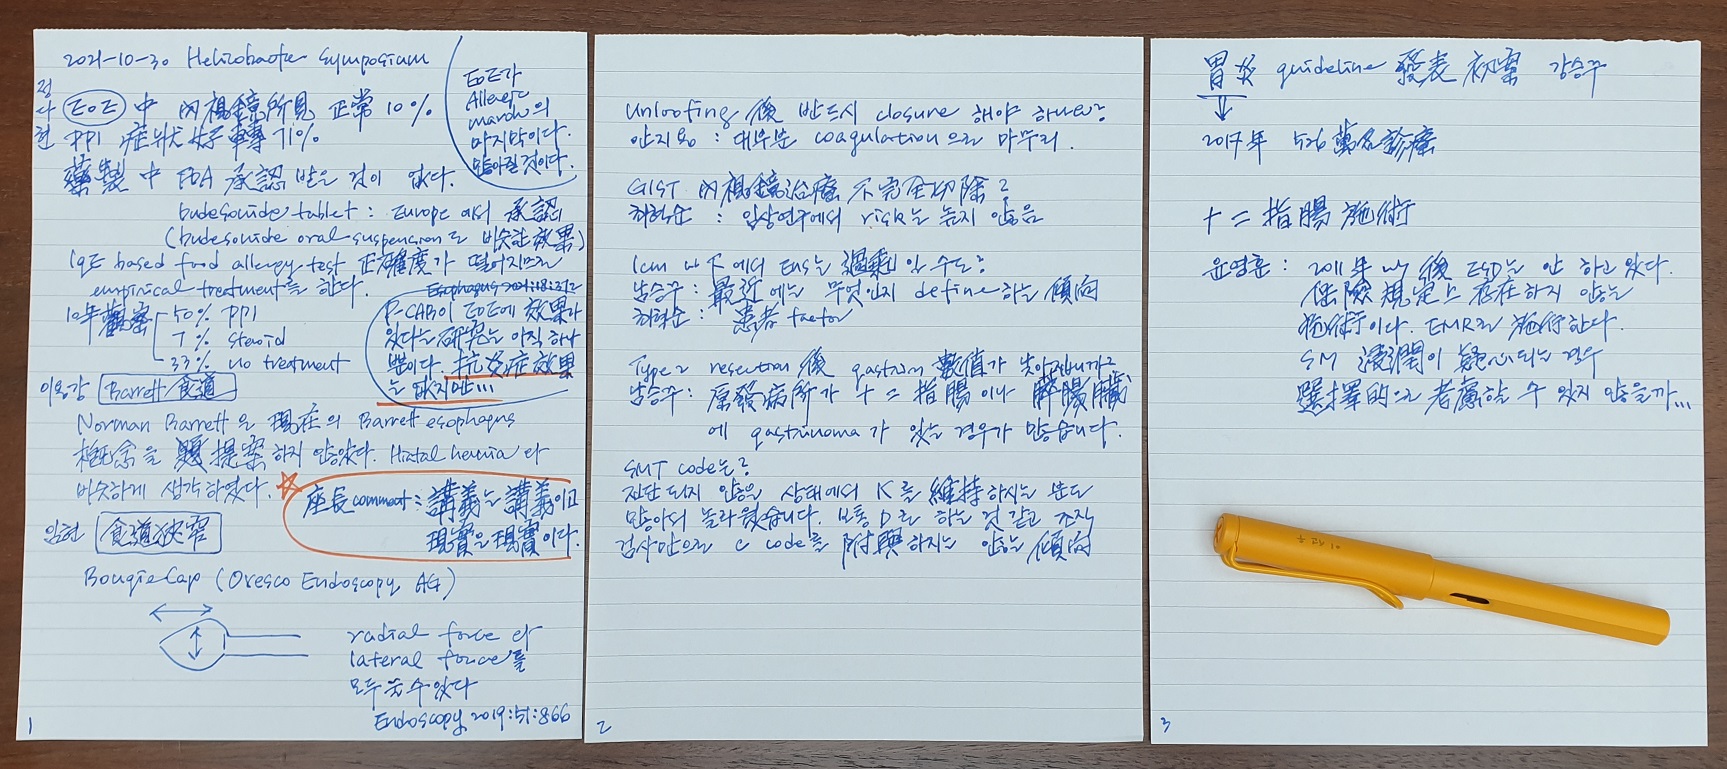 2021-10-30 Helicobacter symposium
정다현
EoE 中 內視鏡所見 正常 10%
PPI 症狀 好轉 71%
藥製 中 FDA 承認 받은 것이 없다.
EoE가
Allergic
march의
마지막이다.
많아질것이다.
budesonide tablet : Europe에서 承認
(budesonide oral suspension도 비슷한 效果)
IgE based food allergy test 正確度가 떨어지므로
empirical treatment를 한다.
10年觀察
50% PPI
7% steroid
33% no treatment
P-CAB이 EoE에 效果가
있다는 硏究는 아직 하나
뿐이다. 抗炎症效果
는 없지만...
이용강 Barrett 食道
Norman Barrett은 現在의 Barrett esophagus
槪念을 提案하지 않았다. Hiatal hernia와
비슷하게 생각하였다.
座長 comment : 講義는 講義이고
現實은 現實이다.
임현 食道狹窄
BougieCap (Ovesco Endoscopy AG)
radial force와
lateral force를
모두 줄 수 있다
Endoscopy 2019:51:866
1
Unloofing 後 반드시 closure 해야 하나요?
안지용 : 대부분 coagulation으로 마무리.
GIST 內視鏡治療 不完全切除?
최혁순 : 임상연구에서 risk는 높지 않음
1cm 以下에서 EUS는 過剩일 수도?
남승우 : 最近에는 무엇인지 define하는 傾向
최혁순 : 患者 factor
Type 2 resection 後 gastrin 數値가 낮아집니까?
남승우 : 原發病所가 十二指腸이나 膵腸臟
에 gastrinoma가 있는 경우가 많습니다.
SMT code는?
진단되지 않은 상태에서 K를 維持하시는 분도
많아서 놀라웠습니다. 보통 D로 하는 것 같고 조직
검사만으로 C code를 附與하지는 않는 傾向
2
胃炎 guideline 發表 初案 강승우
2017年 526萬名診療
十二指腸 施術
윤영훈 : 2011年 以後 ESD는 안 하고 있다.
保險規定上 存在하지 않는
施術이다. EMR로 施行한다.
SM 浸潤이 疑心되는 경우
選擇的으로 考慮할 수 있지 않을까...
3